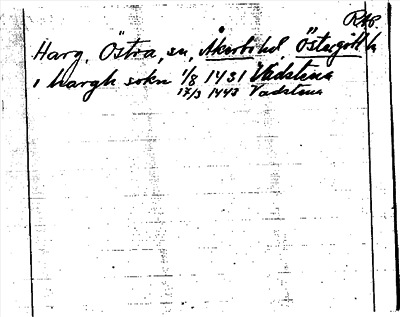 RAp.
Harg, Östra, sn, Åkerbo hd Östergötl
i hargh sokn 1/8 1431 Vadstena
17/3 1443 Vadstena